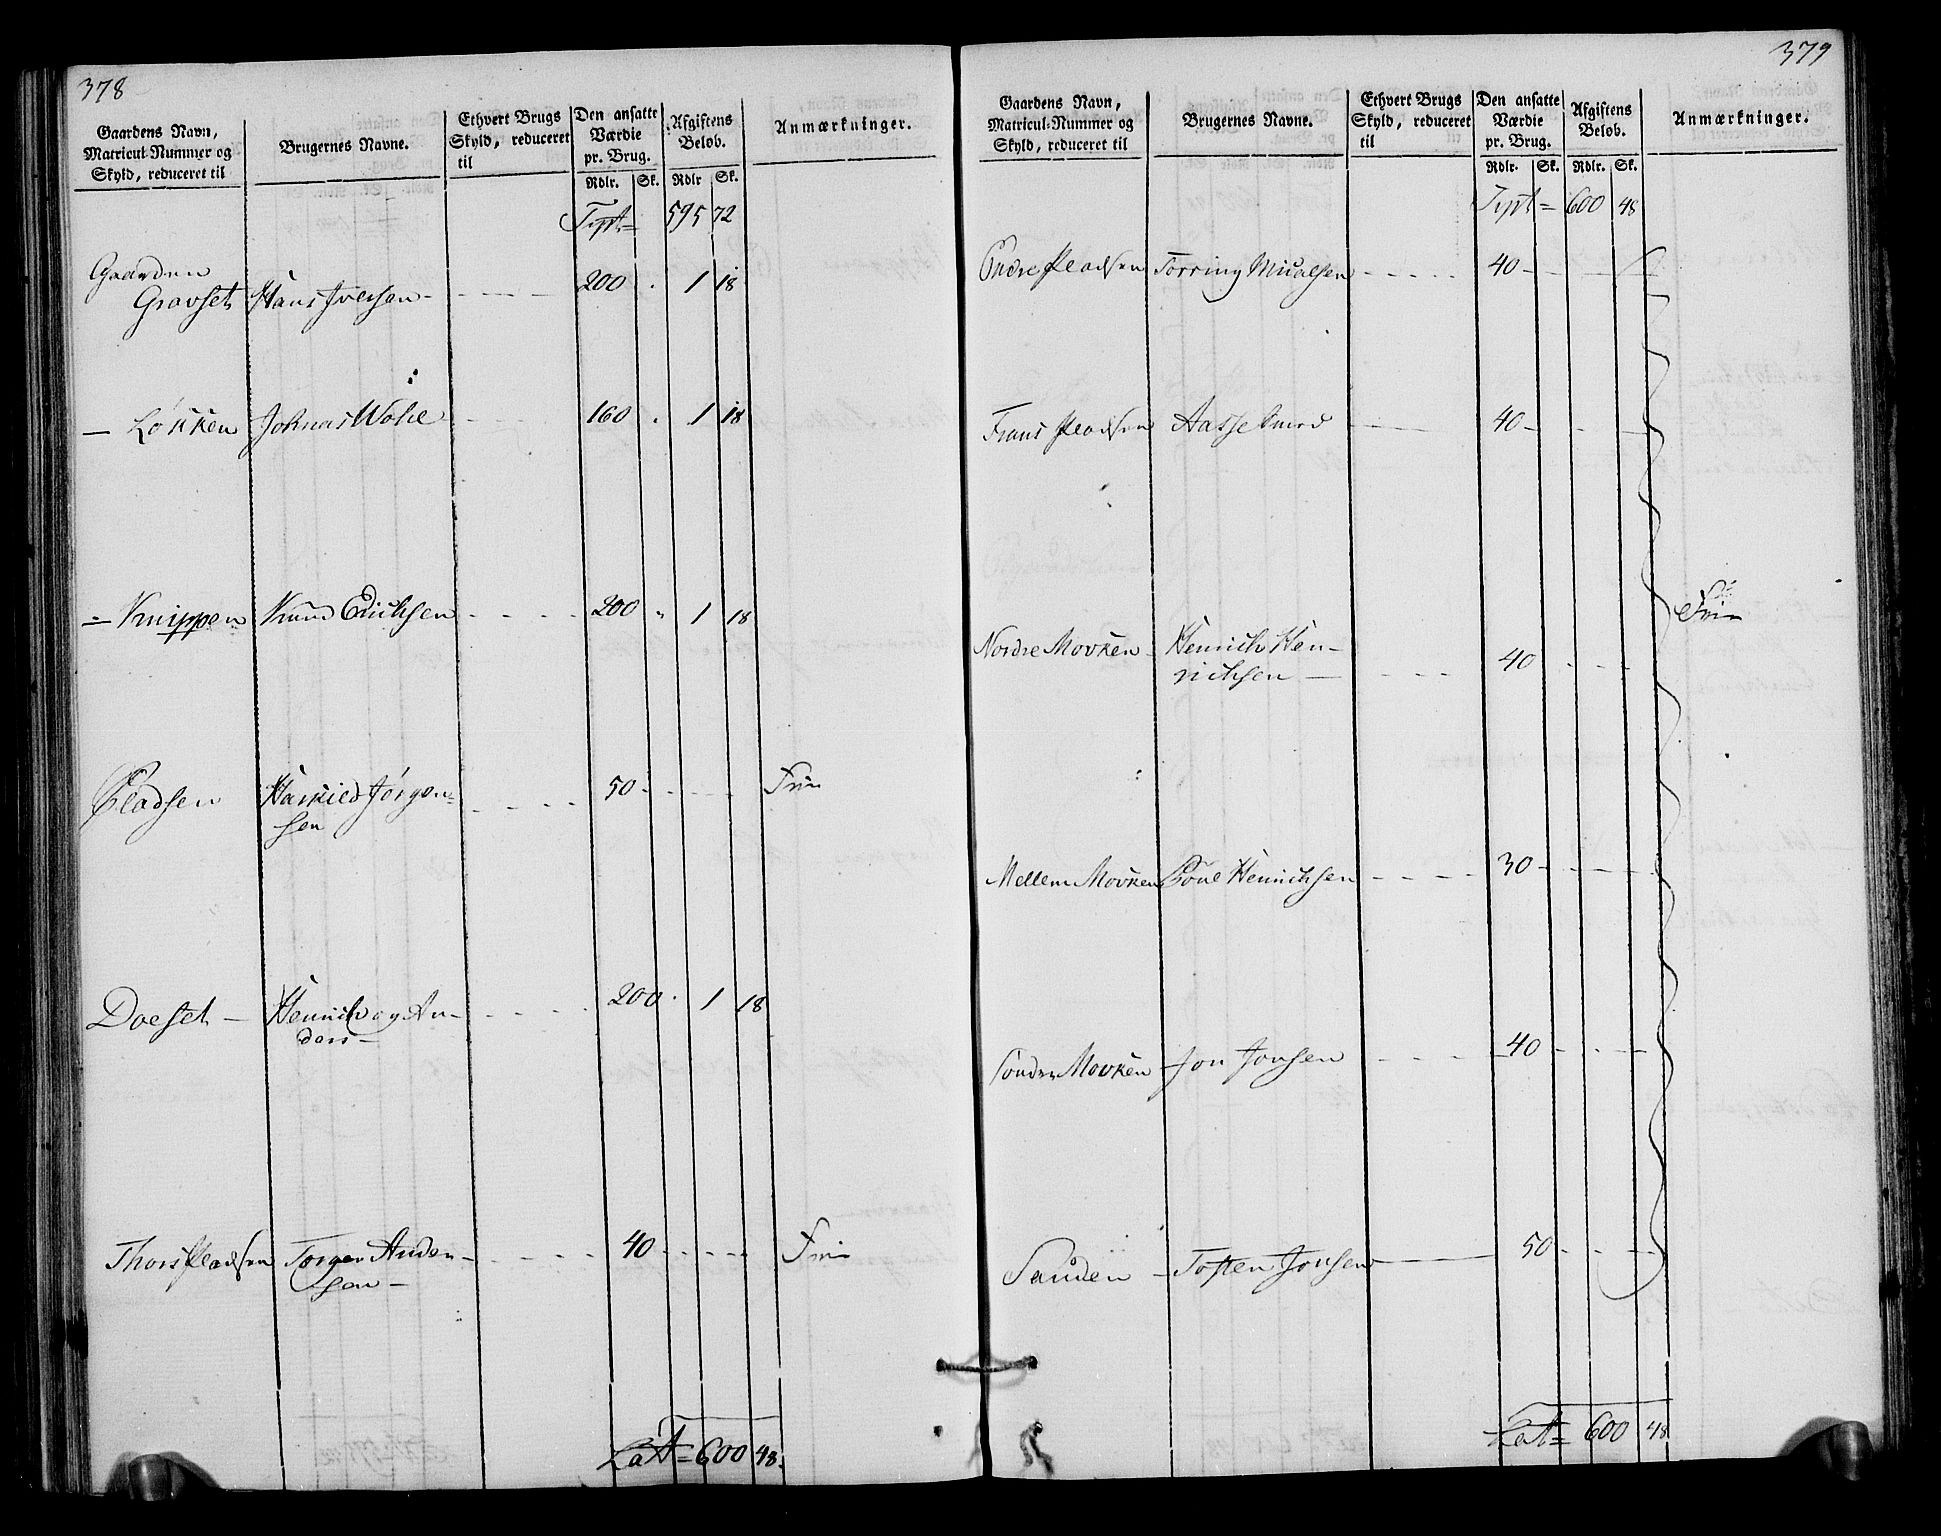 378
Gaardens Navn, Matricul-Nummer og Skyld, reduceret til
Brugernes Navne.
Ethvert Brugs Skyld, reduceret til
Den ansatte Værdie pr. Brug.
Afgiftens Beløb.
Anmærkninger.
Rdlr. Sk. Rdlr Sk.
Tspt = 595 72
Gaarden
Gravset Hans Iversen - 200 . 1 18
— Løkken Johnas Wole 160 . 1 18
= Knippen Knud Erichsen 200 " 1 18
Pladsen Haskild Jørgen=
sen 50 Frie
Doeset — Henrich og An-
ders — 200 . 1 18
Thorspladsen Torger Ander-
sen — 40 Frie
Lat = 600 48.
379
Gaardens Navn, Matricul-Nummer og Skyld, reduceret til
Brugernes Navne.
Ethvert Brugs Skyld, reduceret til
Den ansatte Værdie pr. Brug.
Afgiftens Beløb.
Anmærkninger.
Rdlr. Sk. Rdlr. Sk.
Tspt = 600 48
Endre Pladsen Torring 40
Frans Pladsen Aasse 40
Frie
Nordre Movken Henrich Hen-
richsen — 40
Mellem Movken Poul Henrichsen 30
Sønder Movken Jon Jonsen 40
Sanden — Tosten Jonsen 50
Lat = 600 48